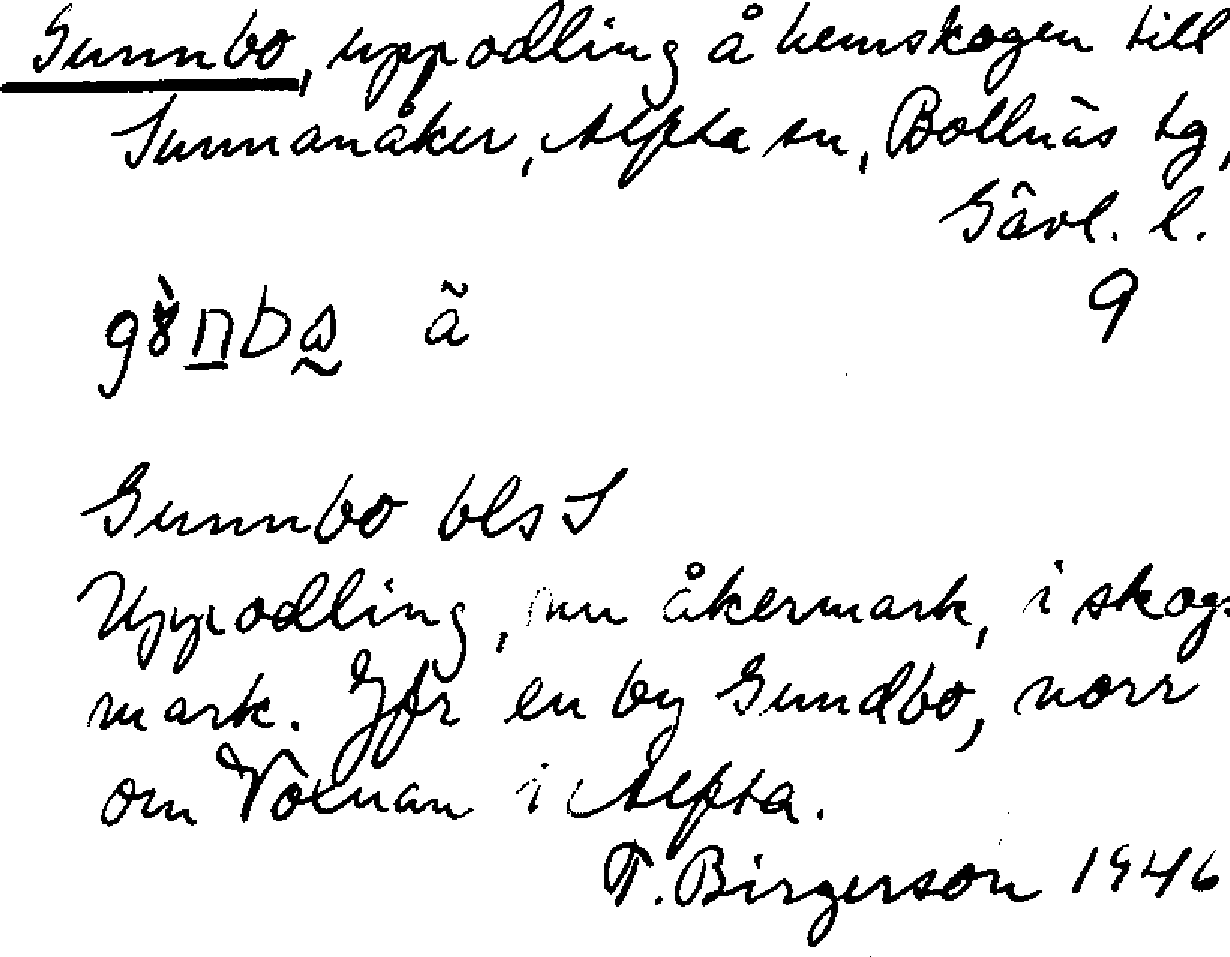 Gunnbo, uppodling å hemskogen till
Sunnanåker, Alfta sn, Bollnäs tg,
Gävl. l.
9
ã
Gunnbo bls S
Uppodling, nu åkermark, i skogs
mark. Jfr en by Gundbo, norr
om Voxnan i Alfta.
T. Birgerson 1946